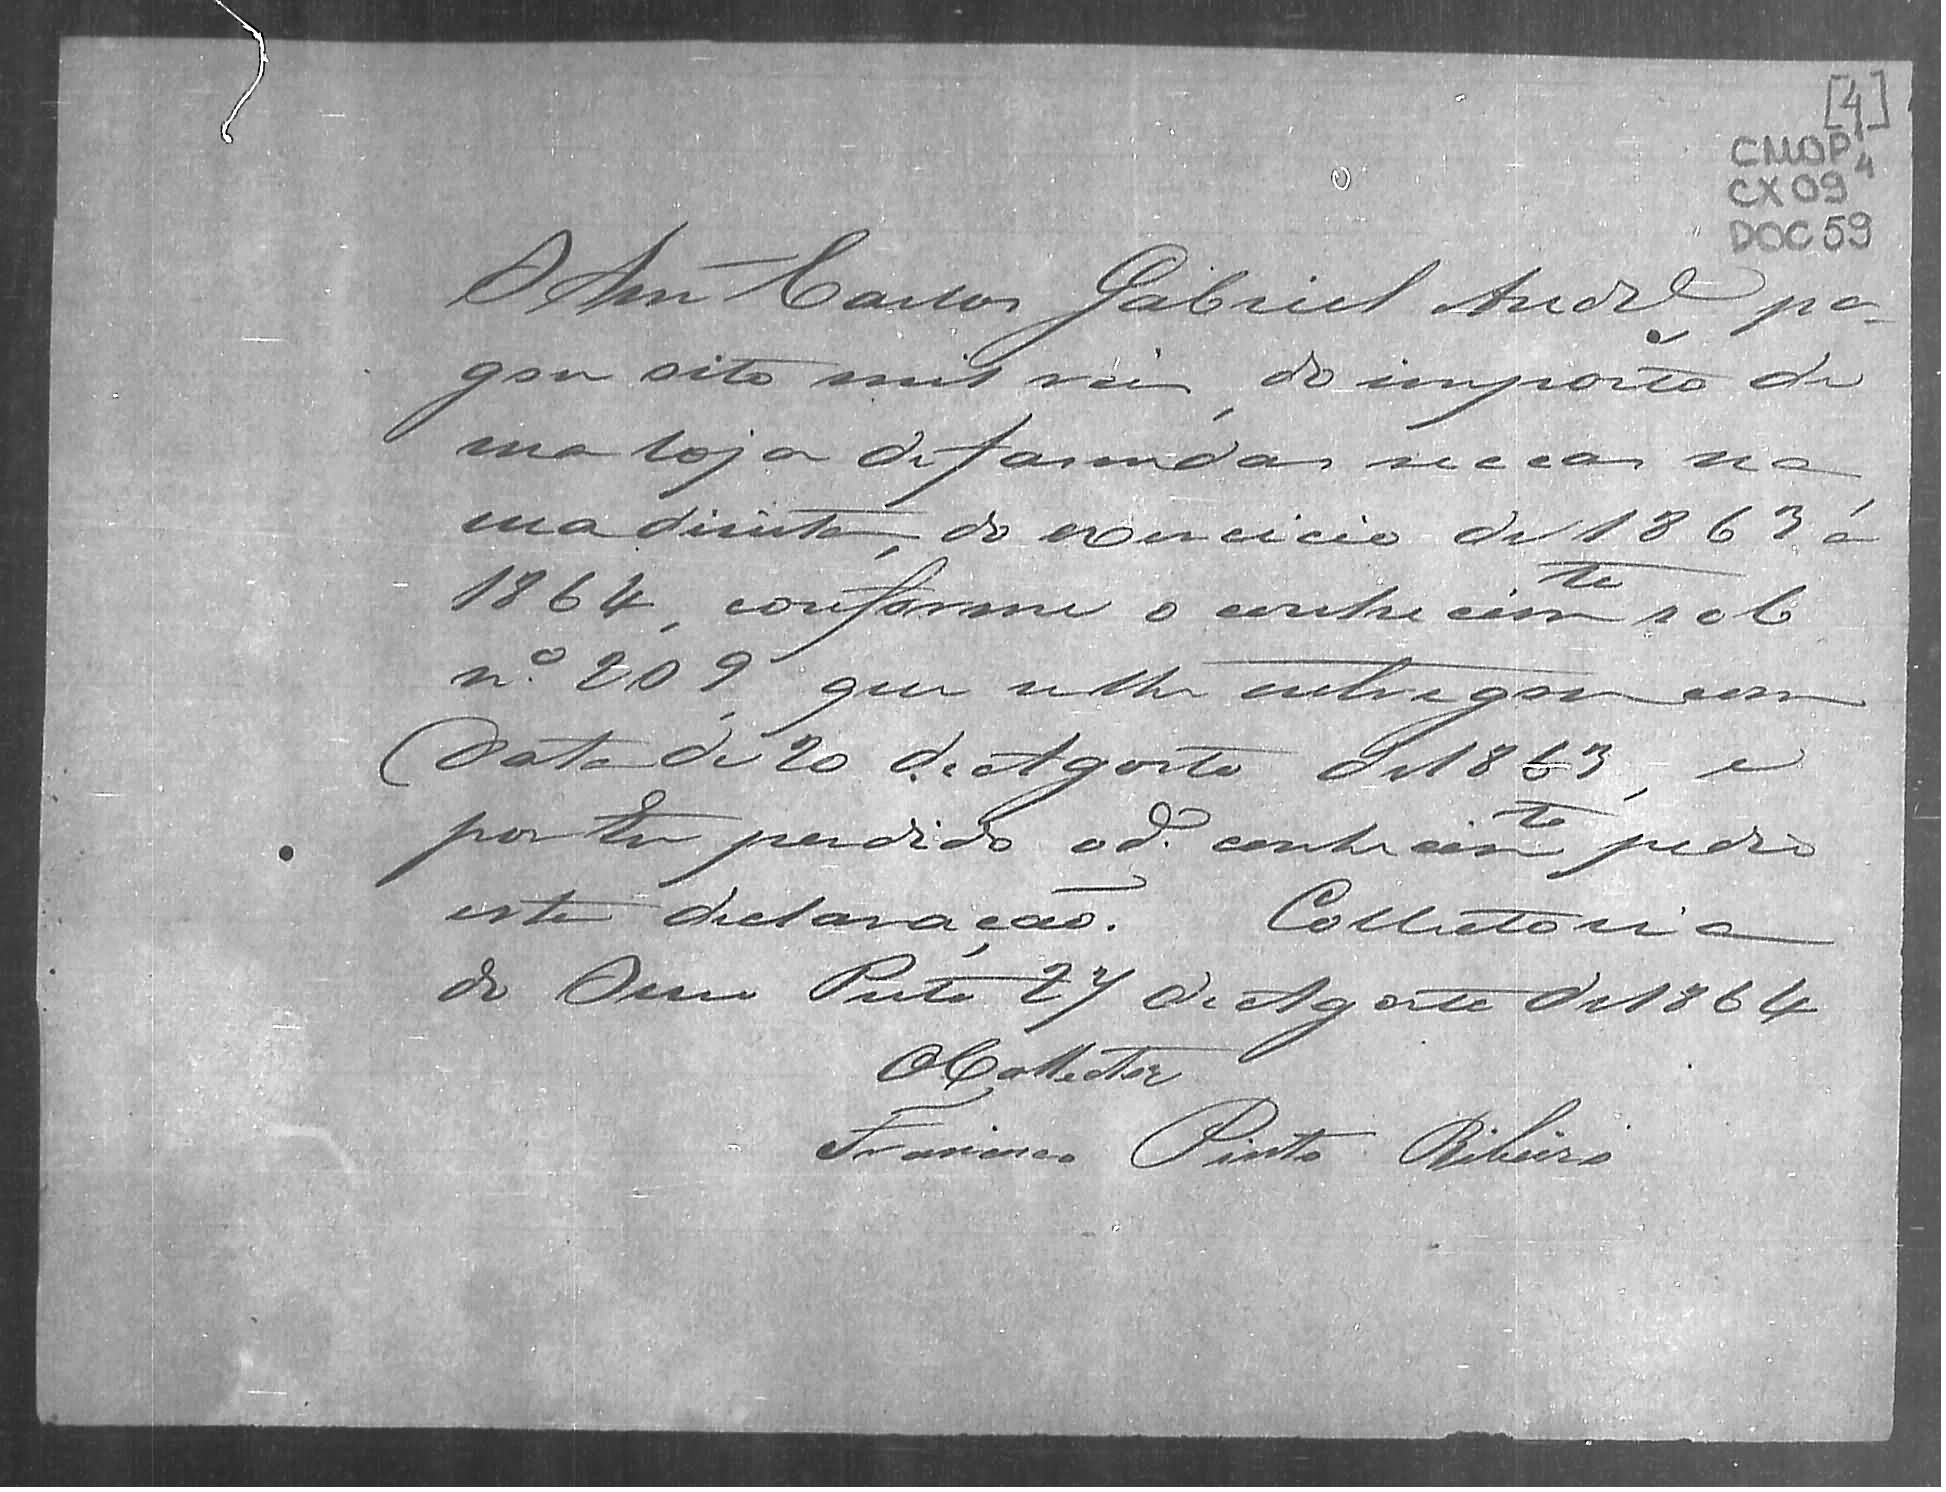 [4]
CMOP
4
CX 09
DOC 59
O Snr Carlos Gabriel Andre pa-
gou oito mil reis, do imposto de
sua loja de fasendas seccas na
rua direita, do exercicio de 1863 á
1864, conforme o conhecimto sob
nº 209, que se lhe entregou com
data de 20 de Agosto de 1863, e
por ter perdido o dº. conhecimto pedio
esta declaração. Collectoria
do Ouro Preto 27 de Agosto de 1864
O Collector
Francisco Pinto Ribeiro